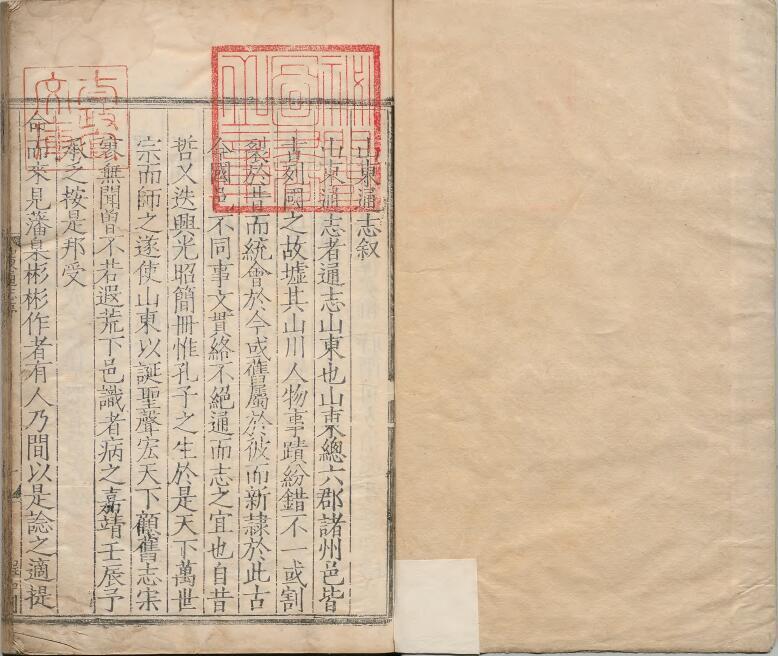 山東通志叙
山東通志者通志山東也山東總六郡諸州邑皆
書列國之故墟其山川人物事蹟紛錯不一或割
裂於昔而統會於今或舊屬於彼而新隸於此古
今國邑不同事文貫絡不絕通而志之宜也自昔
哲又迭興光昭簡冊惟孔子之生於是天下萬世
宗而師之遂使山東以誕聖聲宏天下顧舊志宋
襄無聞曾不若遐荒下邑識者病之嘉靖壬辰予
承乏按是邦受
命而來見藩臬彬彬作者有人乃間以是諗之適提